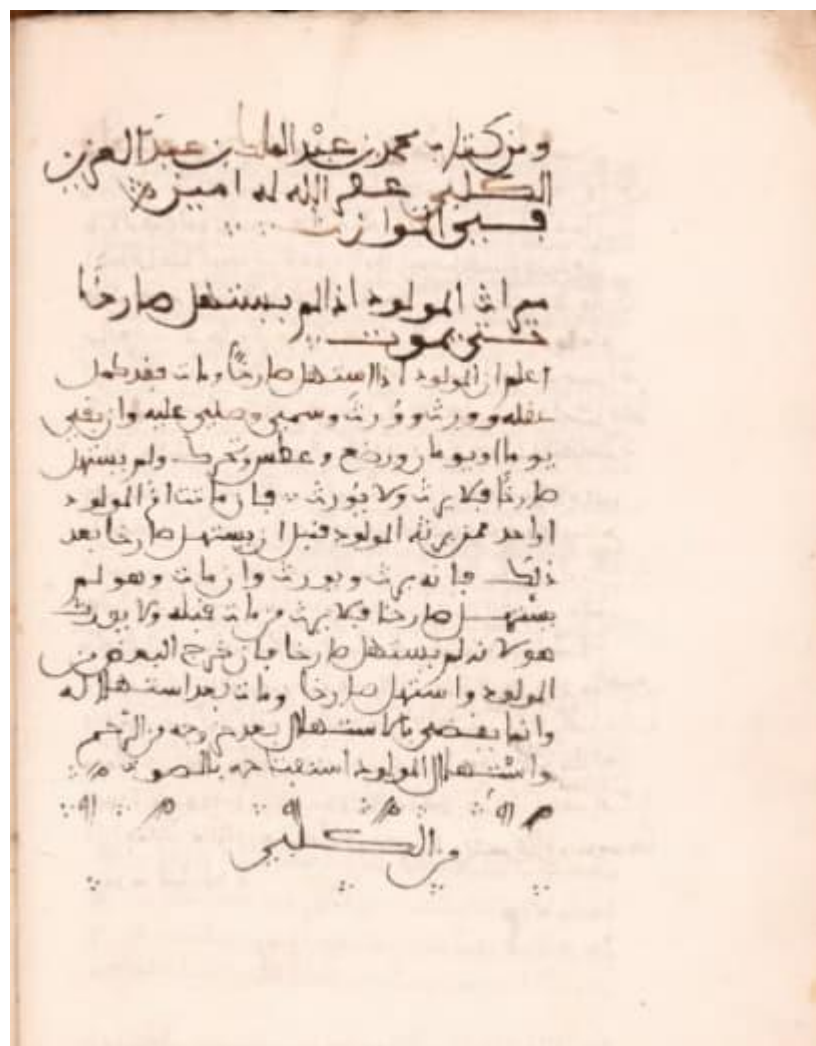 ومن كتاب محمد بن عبد الملك بن عبد العزيز
الكلبي غفر الله له امين
في الموارث
ميراث المولود اذا لم يستهل صارخًا
حتى يموت
اعلم ان المولود اذا استهل صارخًا ومات فقد كمل
عقله وورث وورث وسمي وصلي عليه وان بقي
يوما او يومان ورضع وعطس وتحرك ولم يستهل
صارخًا فلا يرث ولا يورث فان ماتت ام المولود
او احد ممن يرثه المولود قبل ان يستهل صارخا بعد
ذلك فانه يرث ويورث وان مات وهو لم
يستهل صارخا فلا يرث من مات قبله ولا يورث
هو لانه لم يستهل صارخا فان خرج البعض من
المولود واستهل صارخا ومات بعد استهلاله
وانما يقضى بالاستهلال بعد خروجه من الرحم
واستهلال المولود استفتاحه بالصوت
من الكلبي